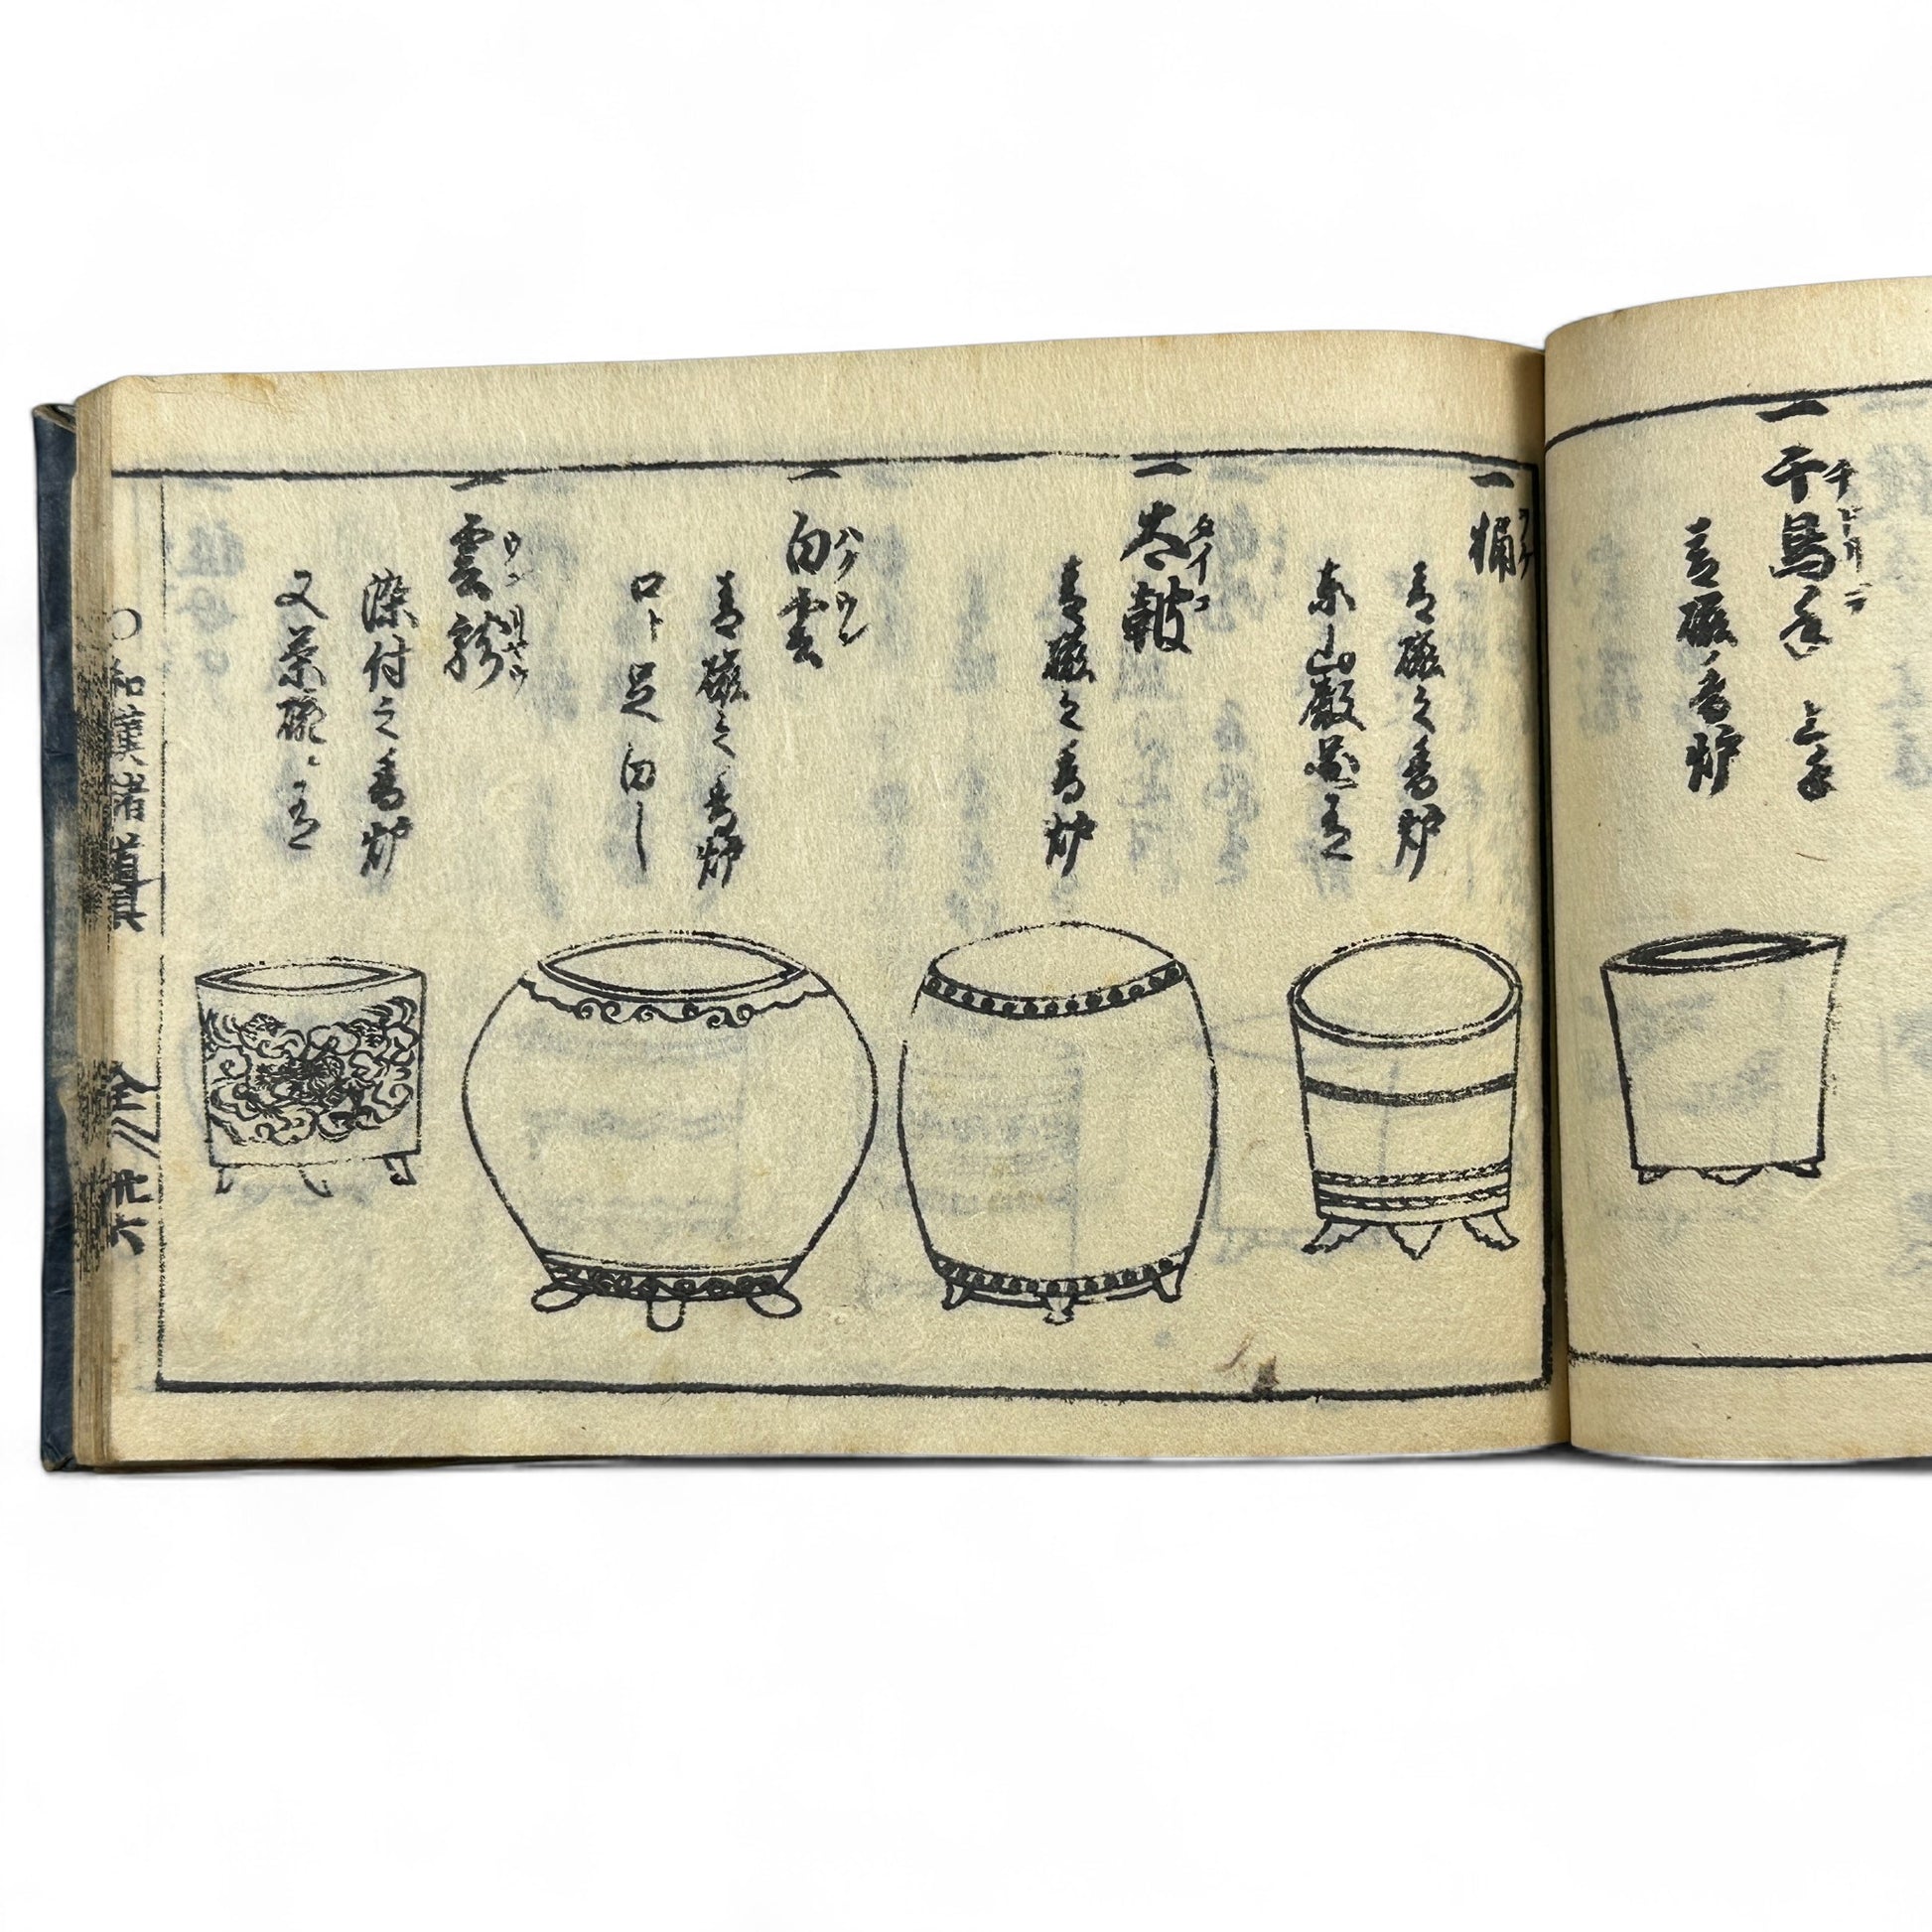 一 千鳥手 上手
チドリデ
青磁ノ香炉
一 桶
ヲケ
青磁之香炉
東山殿御所有
一 太鼓
タイコ
青磁之香炉
一 白雲
ハクウン
青磁之香炉
口ト足白し
一 雲龍
ウンリヤウ
染付之香炉
又茶碗ニ有
〇和漢諸道具
全//卅六